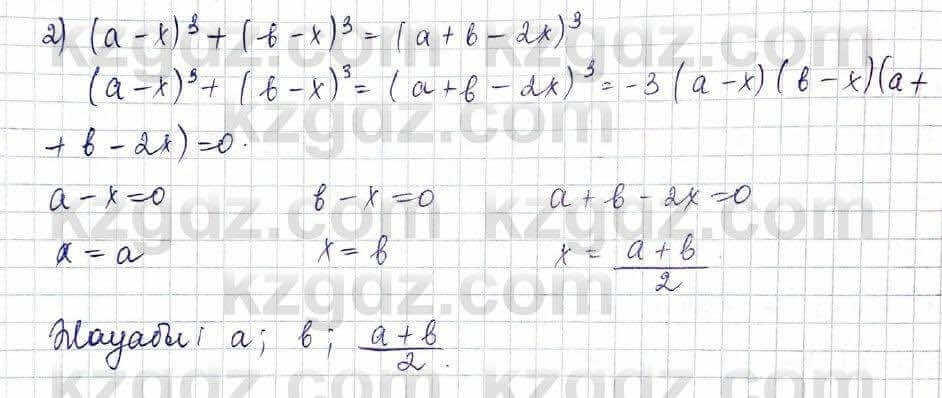 2) (a-x)³+(b-x)³=(a+b-2x)³
(a-x)³+(b-x)³=(a+b-2x)³=-3(a-x)(b-x)(a+
+b-2x)=0.
a-x=0 b-x=0 a+b-2x=0
x=a x=b x=\frac{a+b}{2}
Жауабы: a; b; \frac{a+b}{2}.
kzgdz.com